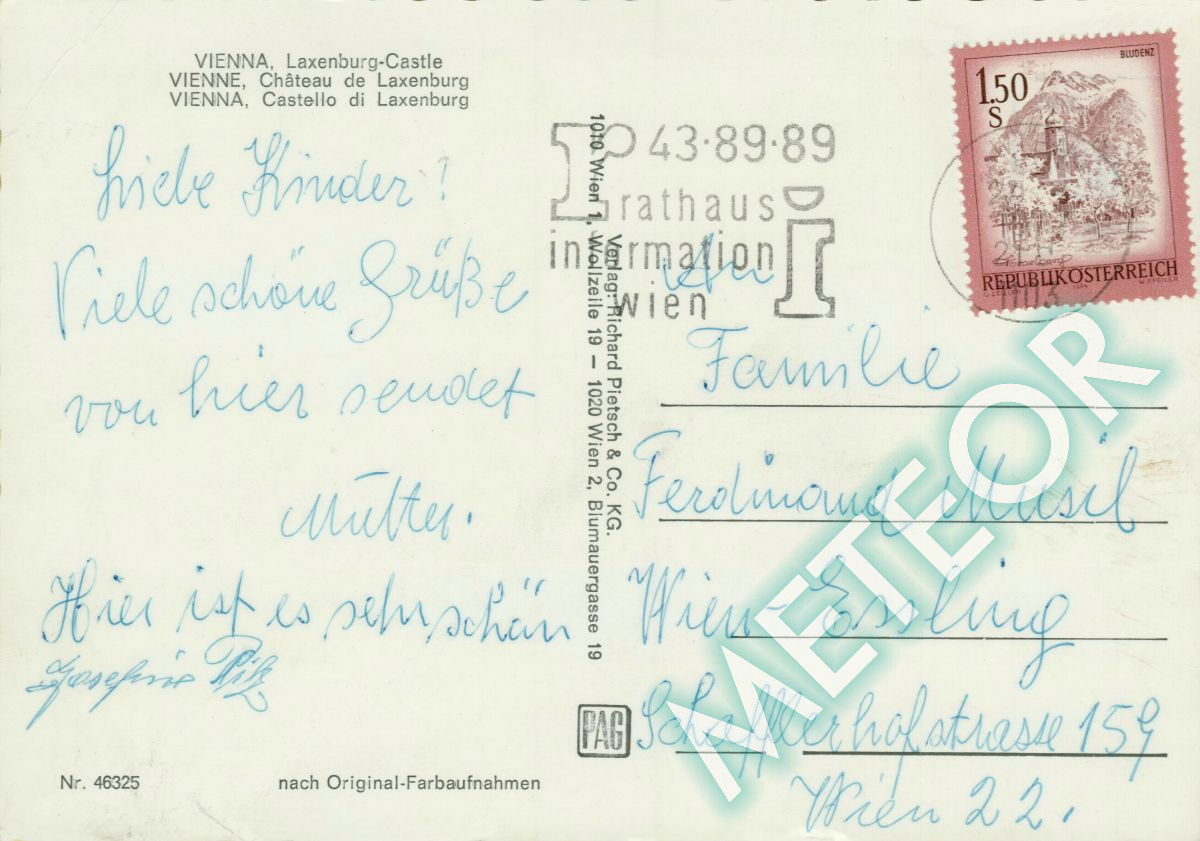 VIENNA, Laxenburg-Castle
VIENNE, Château de Laxenburg
VIENNA, Castello di Laxenburg
Liebe Kinder!
Viele schöne Grüße
von hier sendet
Mutter.
Hier ist es sehr schön
Josefine
Nr. 46325
nach Original-Farbaufnahmen
Verlag: Richard Pietsch & Co. KG.
1010 Wien 1, Wollzeile 19 – 1020 Wien 2, Blumauergasse 19
PAG
43·89·89
rathaus
information
wien
BLUDENZ
1.50
S
REPUBLIK ÖSTERREICH
W. PFEILER
An
Familie
Ferdinand Musil
Wien-Essling
Schafflerhofstrasse 159
Wien 22.
METEOR